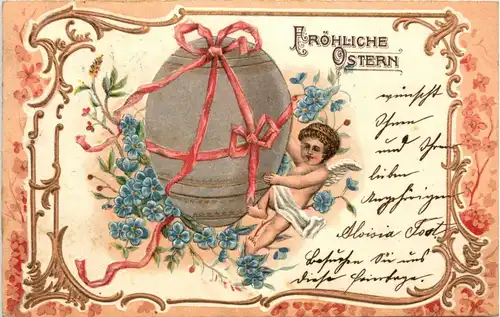 FRÖHLICHE
OSTERN
wünscht
Ihnen
und Ihren
lieben
Angehörigen
Aloisia
Besuchen Sie uns
diese Feiertage.